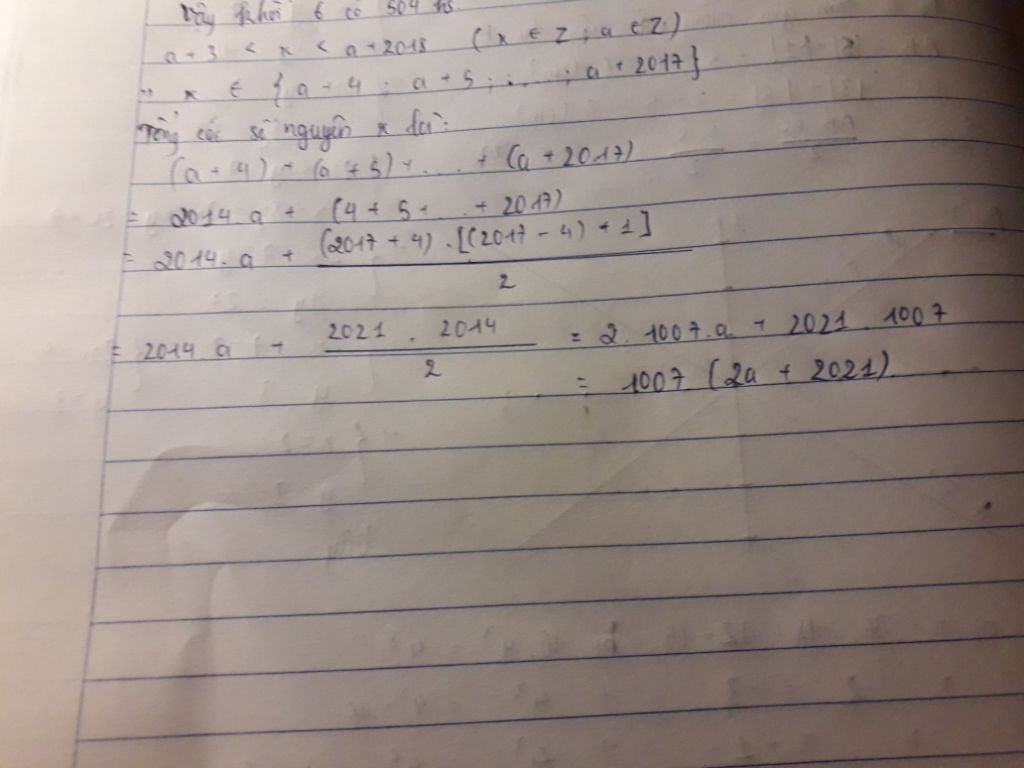 Vậy khối 6 có 504 hs
a + 3 < x < a + 2018 ( x ∈ Z ; a ∈ Z )
x ∈ { a + 4 ; a + 5 ; ... ; a + 2017}
Tổng các số nguyên x là:
(a + 4) + (a + 5) + ... + (a + 2017)
= 2014 a + (4 + 5 + ... + 2017)
= 2014. a + (2017 + 4) . [(2017 - 4) + 1] / 2
= 2014 a + 2021 . 2014 / 2 = 2. 1007. a + 2021 . 1007
= 1007 (2a + 2021)